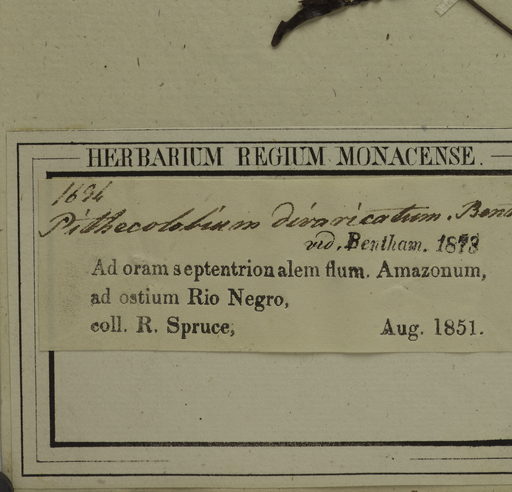 HERBARIUM REGIUM MONACENSE.
1634
Pithecolobium divaricatum. Bent
vid. Bentham. 1873
Ad oram septentrionalem flum. Amazonum,
ad ostium Rio Negro,
coll. R. Spruce, Aug. 1851.